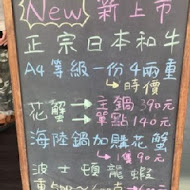 New 新上市
正宗日本和牛
A4等級一份4兩重
→時價
花蟹→主鍋390元
→單點140元
海陸鍋加購花蟹
→1隻90元
波士頓龍蝦